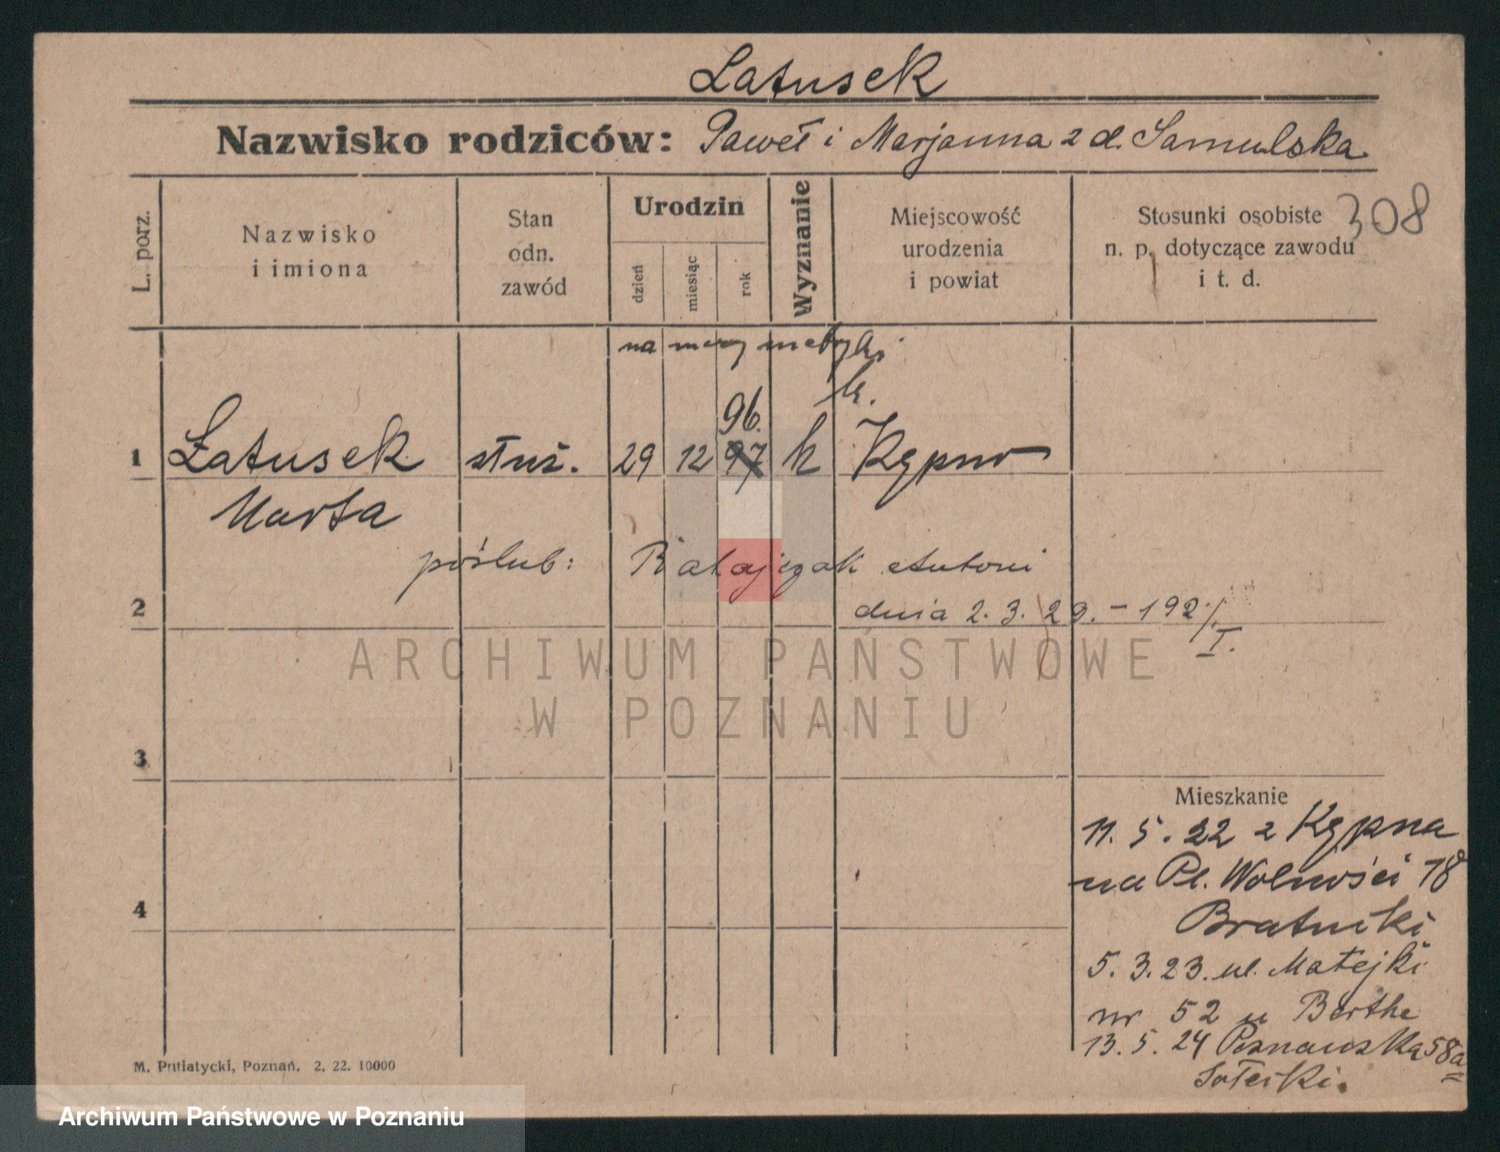 Latusek
Nazwisko rodziców: Paweł i Marjanna z d. Samulska
308
L. porz.
Nazwisko i imiona
Stan odn. zawód
Urodzin
dzień
miesiąc
rok
Wyznanie
Miejscowość urodzenia i powiat
Stosunki osobiste n. p. dotyczące zawodu i t. d.
na mocy metryki
k.
96.
1 Łatusek służ. 29 12 97 k Kępno
Marta
poślub: Ratajczak Antoni
2
dnia 2. 3. 29. - 192
I.
ARCHIWUM PAŃSTWOWE
W POZNANIU
3
Mieszkanie
11. 5. 22 z Kępna
na Pl. Wolności 18
4
Bratniki
5. 3. 23. ul. Matejki
nr 52 u Berthe
13. 5. 24 Poznańska 58a
M. Putiatycki, Poznań. 2. 22. 10000
Archiwum Państwowe w Poznaniu